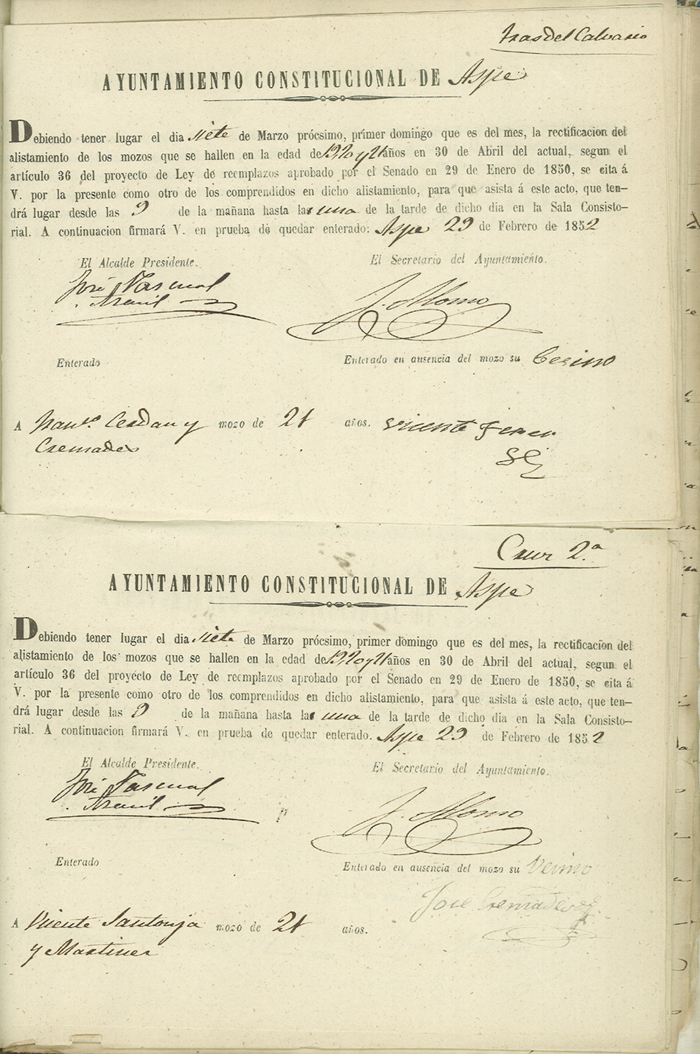 Tras del Calvario
AYUNTAMIENTO CONSTITUCIONAL DE Aspe
Debiendo tener lugar el dia siete de Marzo prócsimo, primer domingo que es del mes, la rectificacion del
alistamiento de los mozos que se hallen en la edad de 19 20 y 21 años en 30 de Abril del actual, segun el
artículo 36 del proyecto de Ley de reemplazos aprobado por el Senado en 29 de Enero de 1850, se cita á
V. por la presente como otro de los comprendidos en dicho alistamiento, para que asista á este acto, que ten-
drá lugar desde las 9 de la mañana hasta la una de la tarde de dicho dia en la Sala Consisto-
rial. A continuacion firmará V. en prueba de quedar enterado: Aspe 29 de Febrero de 1852
El Alcalde Presidente. El Secretario del Ayuntamiento.
José Pascual J. Alonso
Enterado Enterado en ausencia del mozo su Vecino
A Cerdan y mozo de 21 años. Vicente
Cremades
Cruz 2.a
AYUNTAMIENTO CONSTITUCIONAL DE Aspe
Debiendo tener lugar el dia siete de Marzo prócsimo, primer domingo que es del mes, la rectificacion del
alistamiento de los mozos que se hallen en la edad de 19 20 y 21 años en 30 de Abril del actual, segun el
artículo 36 del proyecto de Ley de reemplazos aprobado por el Senado en 29 de Enero de 1850, se cita á
V. por la presente como otro de los comprendidos en dicho alistamiento, para que asista á este acto, que ten-
drá lugar desde las 9 de la mañana hasta la una de la tarde de dicho dia en la Sala Consisto-
rial. A continuacion firmará V. en prueba de quedar enterado. Aspe 29 de Febrero de 1852
El Alcalde Presidente. El Secretario del Ayuntamiento.
José Pascual J. Alonso
Enterado Enterado en ausencia del mozo su Vecino
José Cremades
A Vicente Santonja mozo de 21 años.
y Martinez